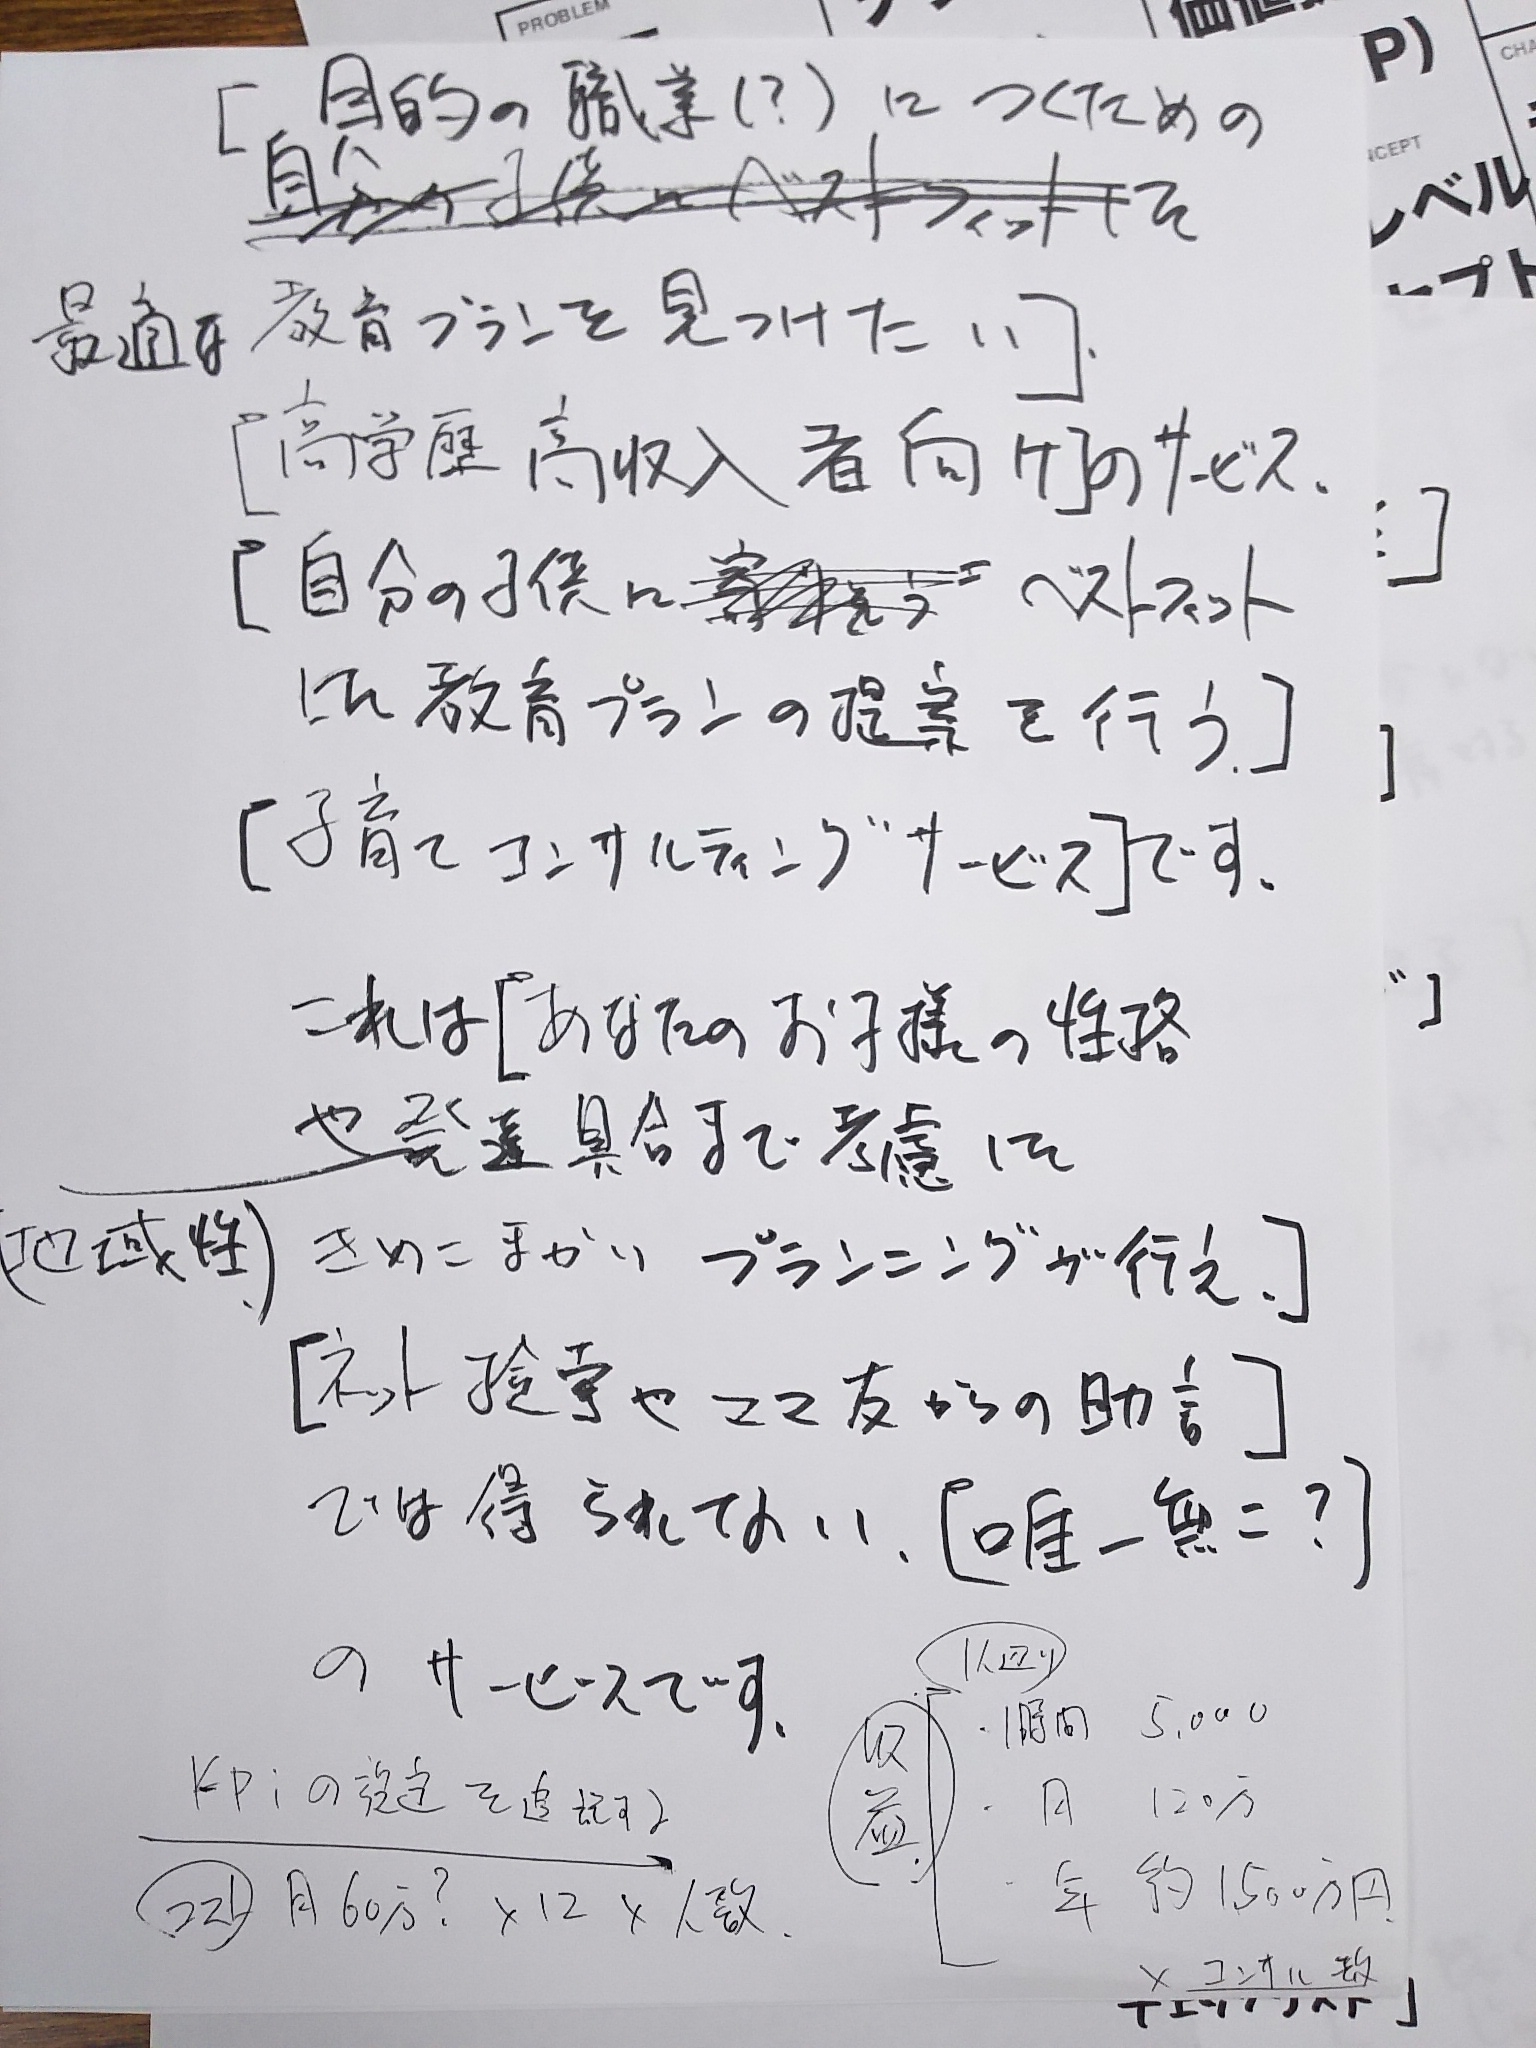 PROBLEM
P)
CHA
NCEPT
レベル
ェプト
[目的の職業(?)につくための
自分の子供にベストフィットして
最適な教育プランを見つけたい].
[高学歴高収入者向け]のサービス.
[自分の子供に ベストフィット
した教育プランの提案を行う.]
[子育てコンサルティングサービス]です.
これは[あなたのお子様の性格
や発達具合まで考慮して
(地域性) きめこまかいプランニングが行え.]
[ネット検索やママ友からの助言]
では得られてない、[唯一無二?]
のサービスです.
KPiの設定を追記する
コスト 月60万? × 12 × 人数.
1人辺り
収益.
・1時間 5,000
・月 120万
・年 約1500万円
× コンサル数